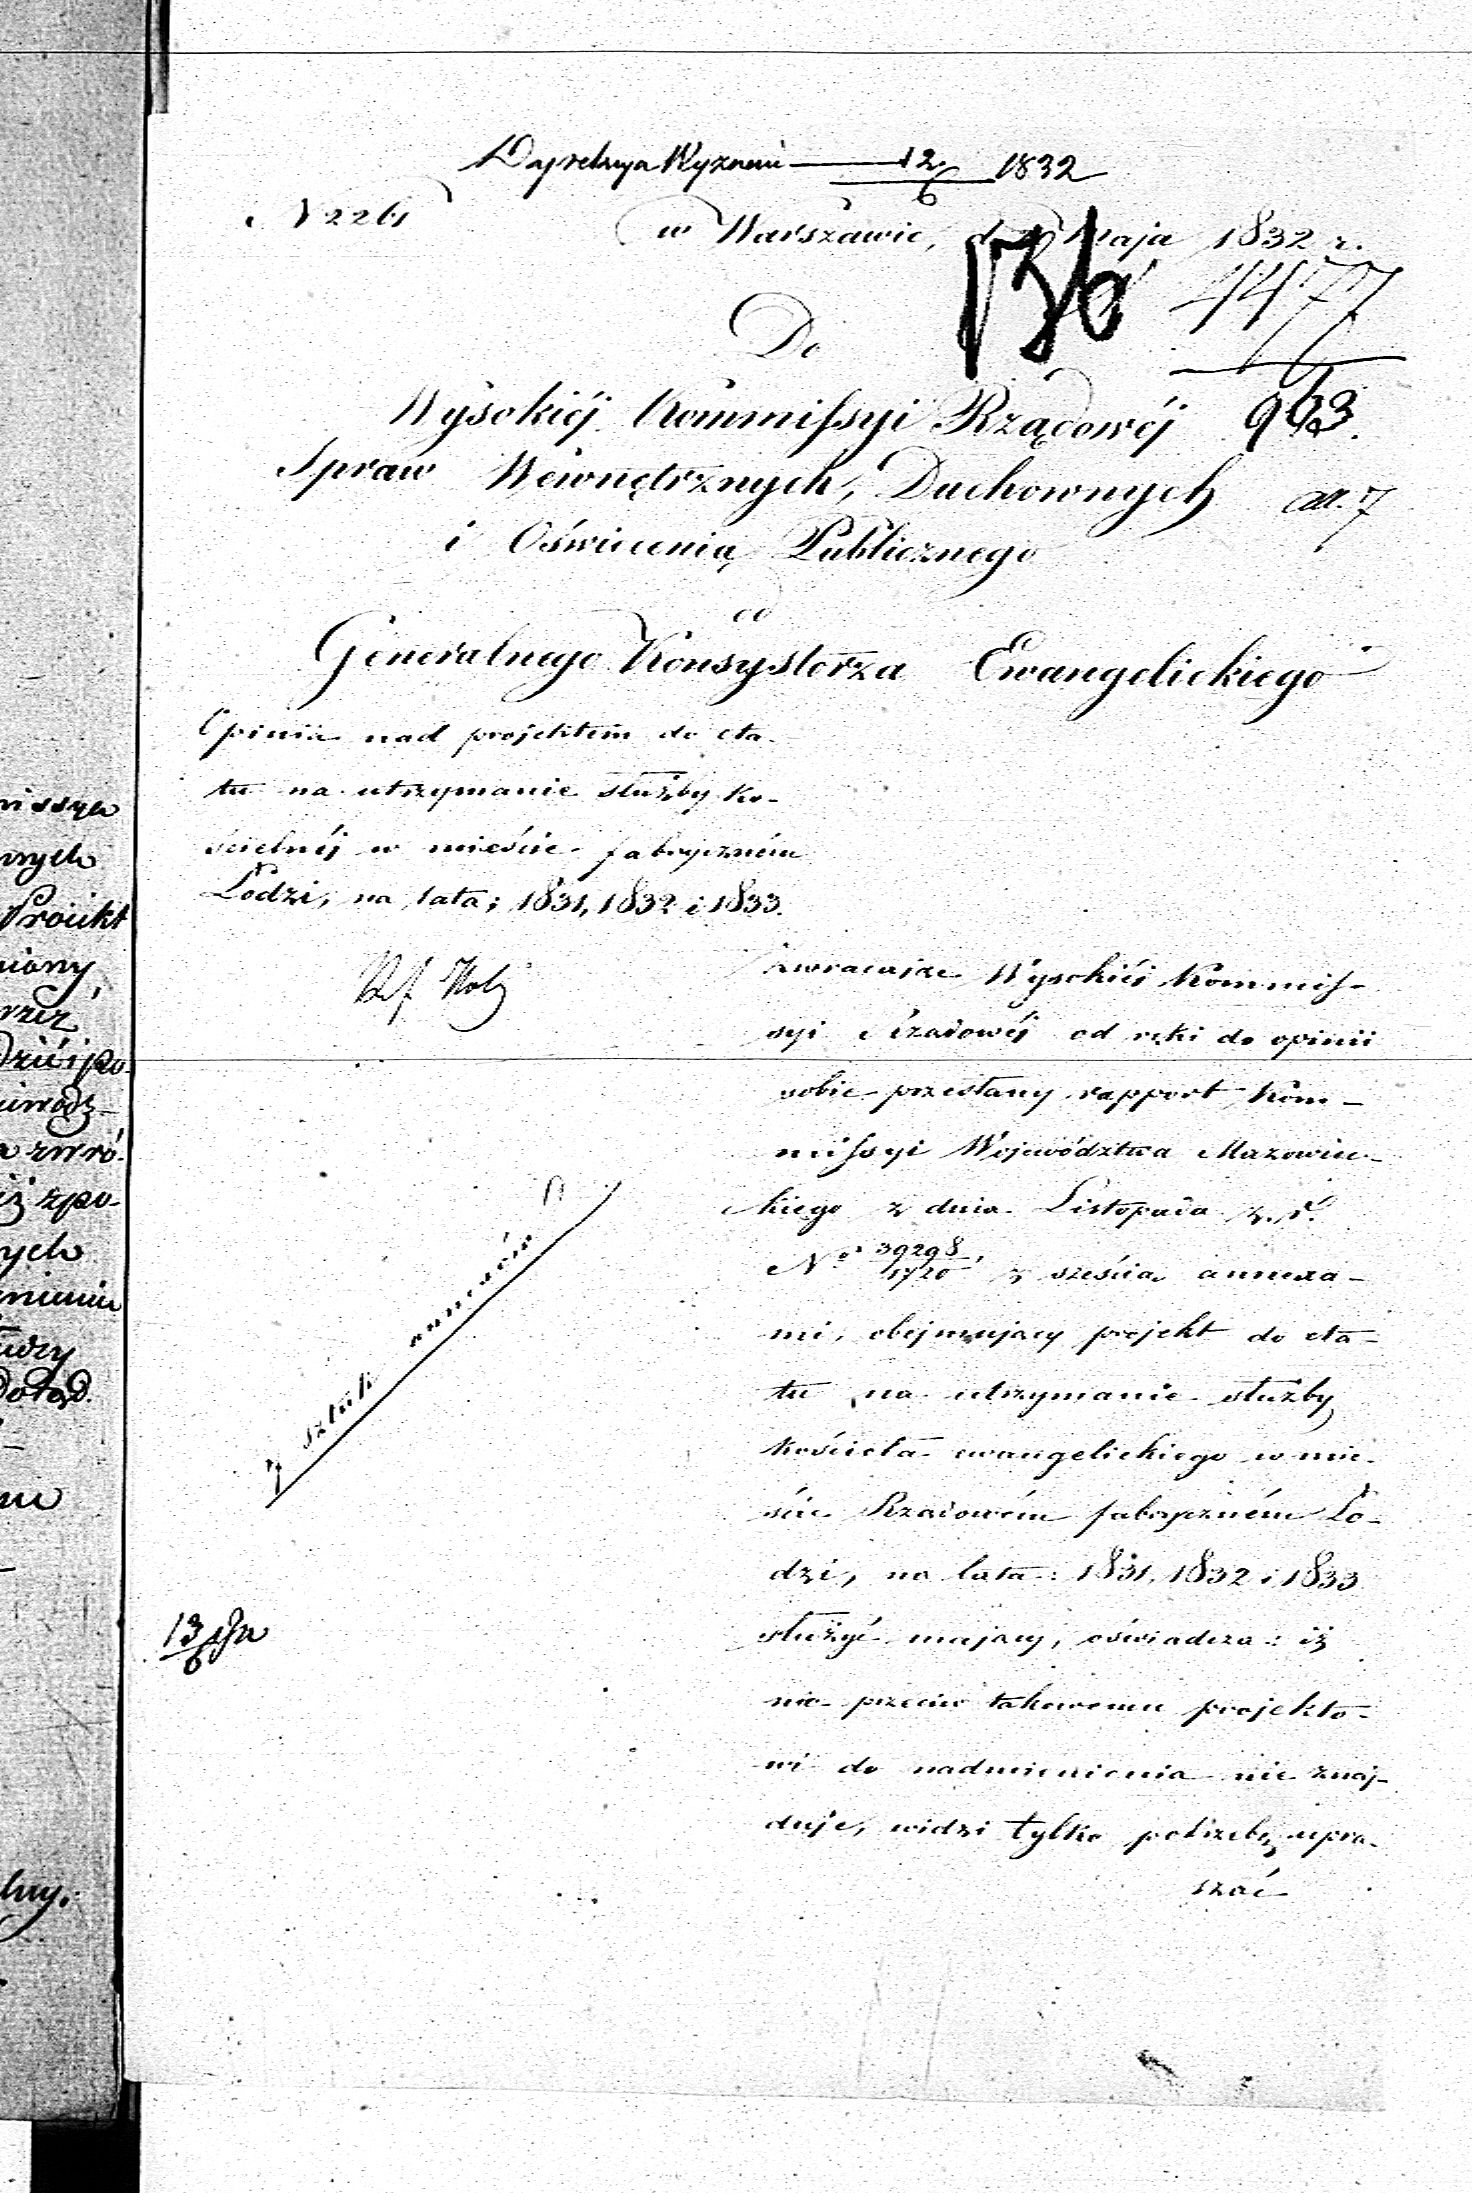 Dyrekcya Wyznań 12/6 1832
N 2261
w Warszawie, d. Maja 1832 r.
136
4477
963.
Do
Wysokiéj Kommissyi Rządowéj
Spraw Wewnętrznych, Duchownych
an. 7
i Oświecenia Publicznego
od
Generalnego Konsystorza Ewangelickiego
Opinia nad projektem do eta-
tu na utrzymanie służby ko-
ścielnéj w mieście fabryczném
Łodzi, na lata; 1831, 1832 i 1833.
Ref.
Zwracając Wysokiéj Kommis-
syi Rządowéj od ręki do opinii
sobie przesłany rapport Kom-
missyi Województwa Mazowiec-
kiego z dnia Listopada z. r.
No 39298/1720 z sześcią annexa-
mi, obejmujący projekt do eta-
tu na utrzymanie służby
kościoła ewangelickiego w mie-
ście Rządowém fabryczném Ło-
dzi, na lata: 1831, 1832 i 1833
służyć mający, oświadcza: iż
nic przeciw takowemu projekto-
wi do nadmienienia nie znaj-
duje, widzi tylko potrzebę upra-
szać
7 sztuk annexów
13/6
missya
wnych
Proiekt
niony,
rzez
dzić i po-
a zwró-
iż zpo-
nych
nieniu
dotąd.
lny.